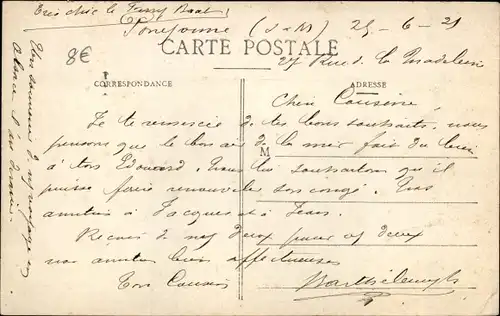 Très chic le Ferry Boat!
(S & M) 25-6-21
CARTE POSTALE
27 Rue de la Madeleine
8€
CORRESPONDANCE
ADRESSE
M
Cher Cousine,
Je te remercie de tes bons souhaits, nous
pensons que le bon air de la mer fait du bien
à ton Edouard. Nous lui souhaitons qu'il
puisse faire renouveler son congé. Nos
amitiés à Jacques et à Jean.
Reçois de nous deux pour vous deux
nos amitiés bien affectueuses
Ton Cousin
Barthélemy